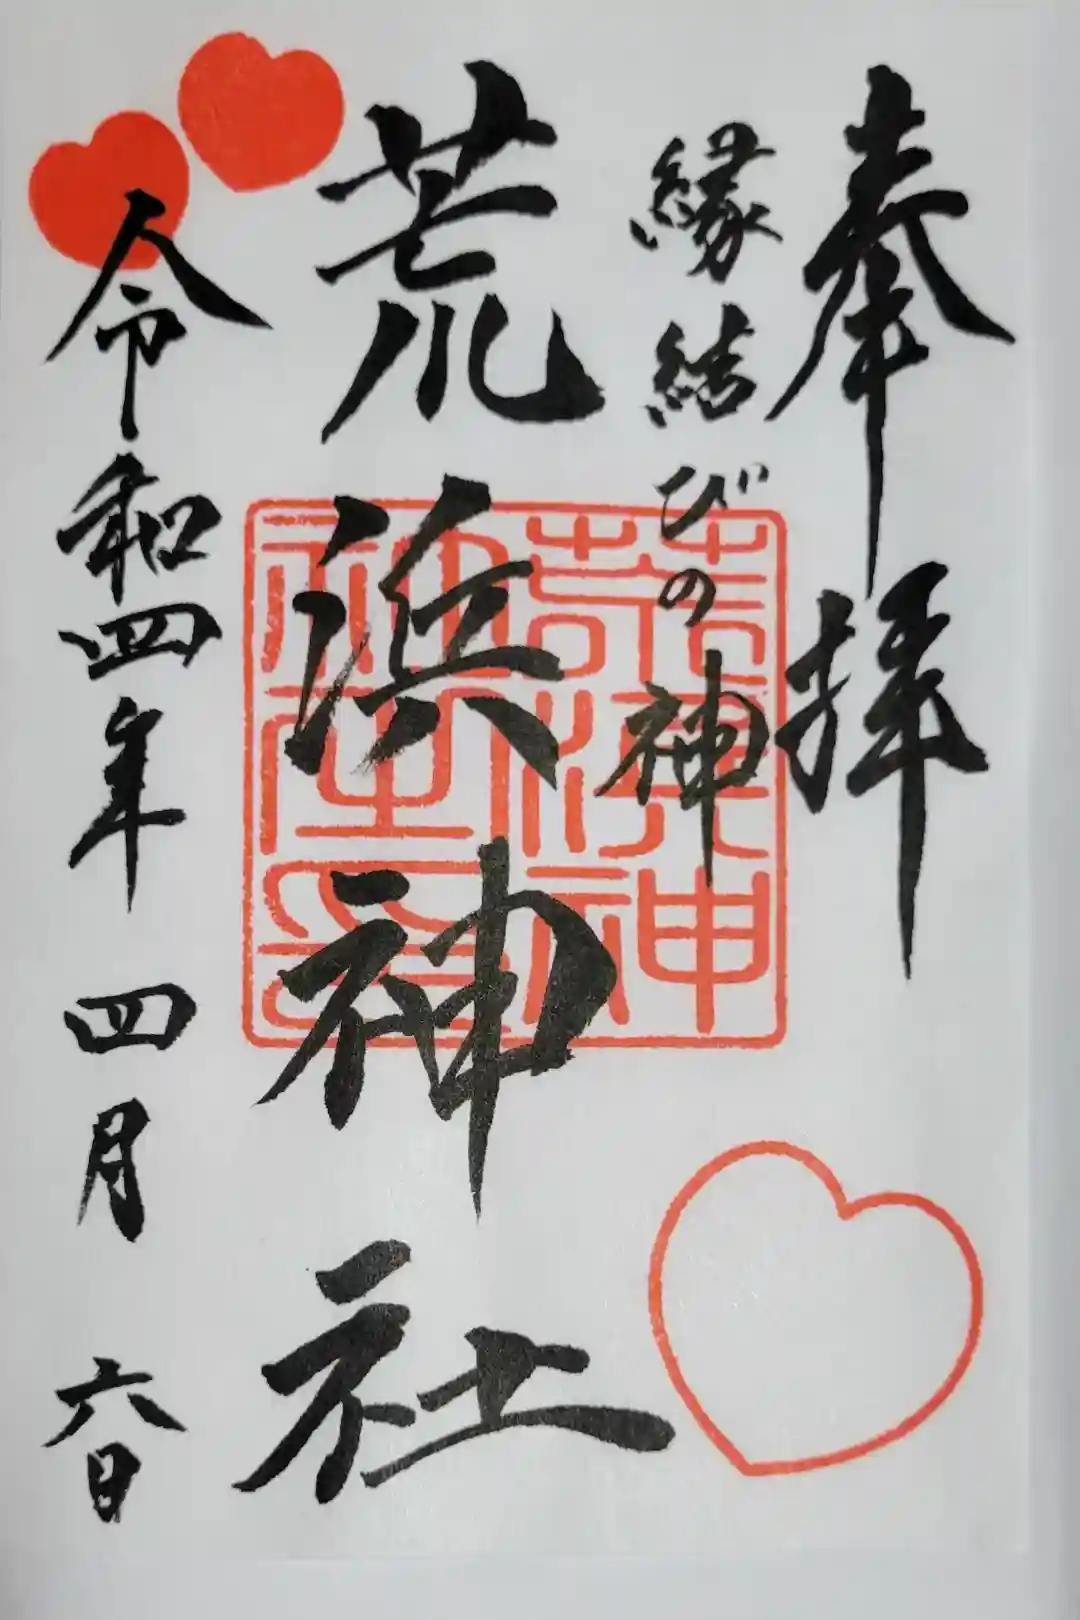 奉拝
縁結びの神
荒浜神社
令和四年 四月 六日
荒濱神
社宮司